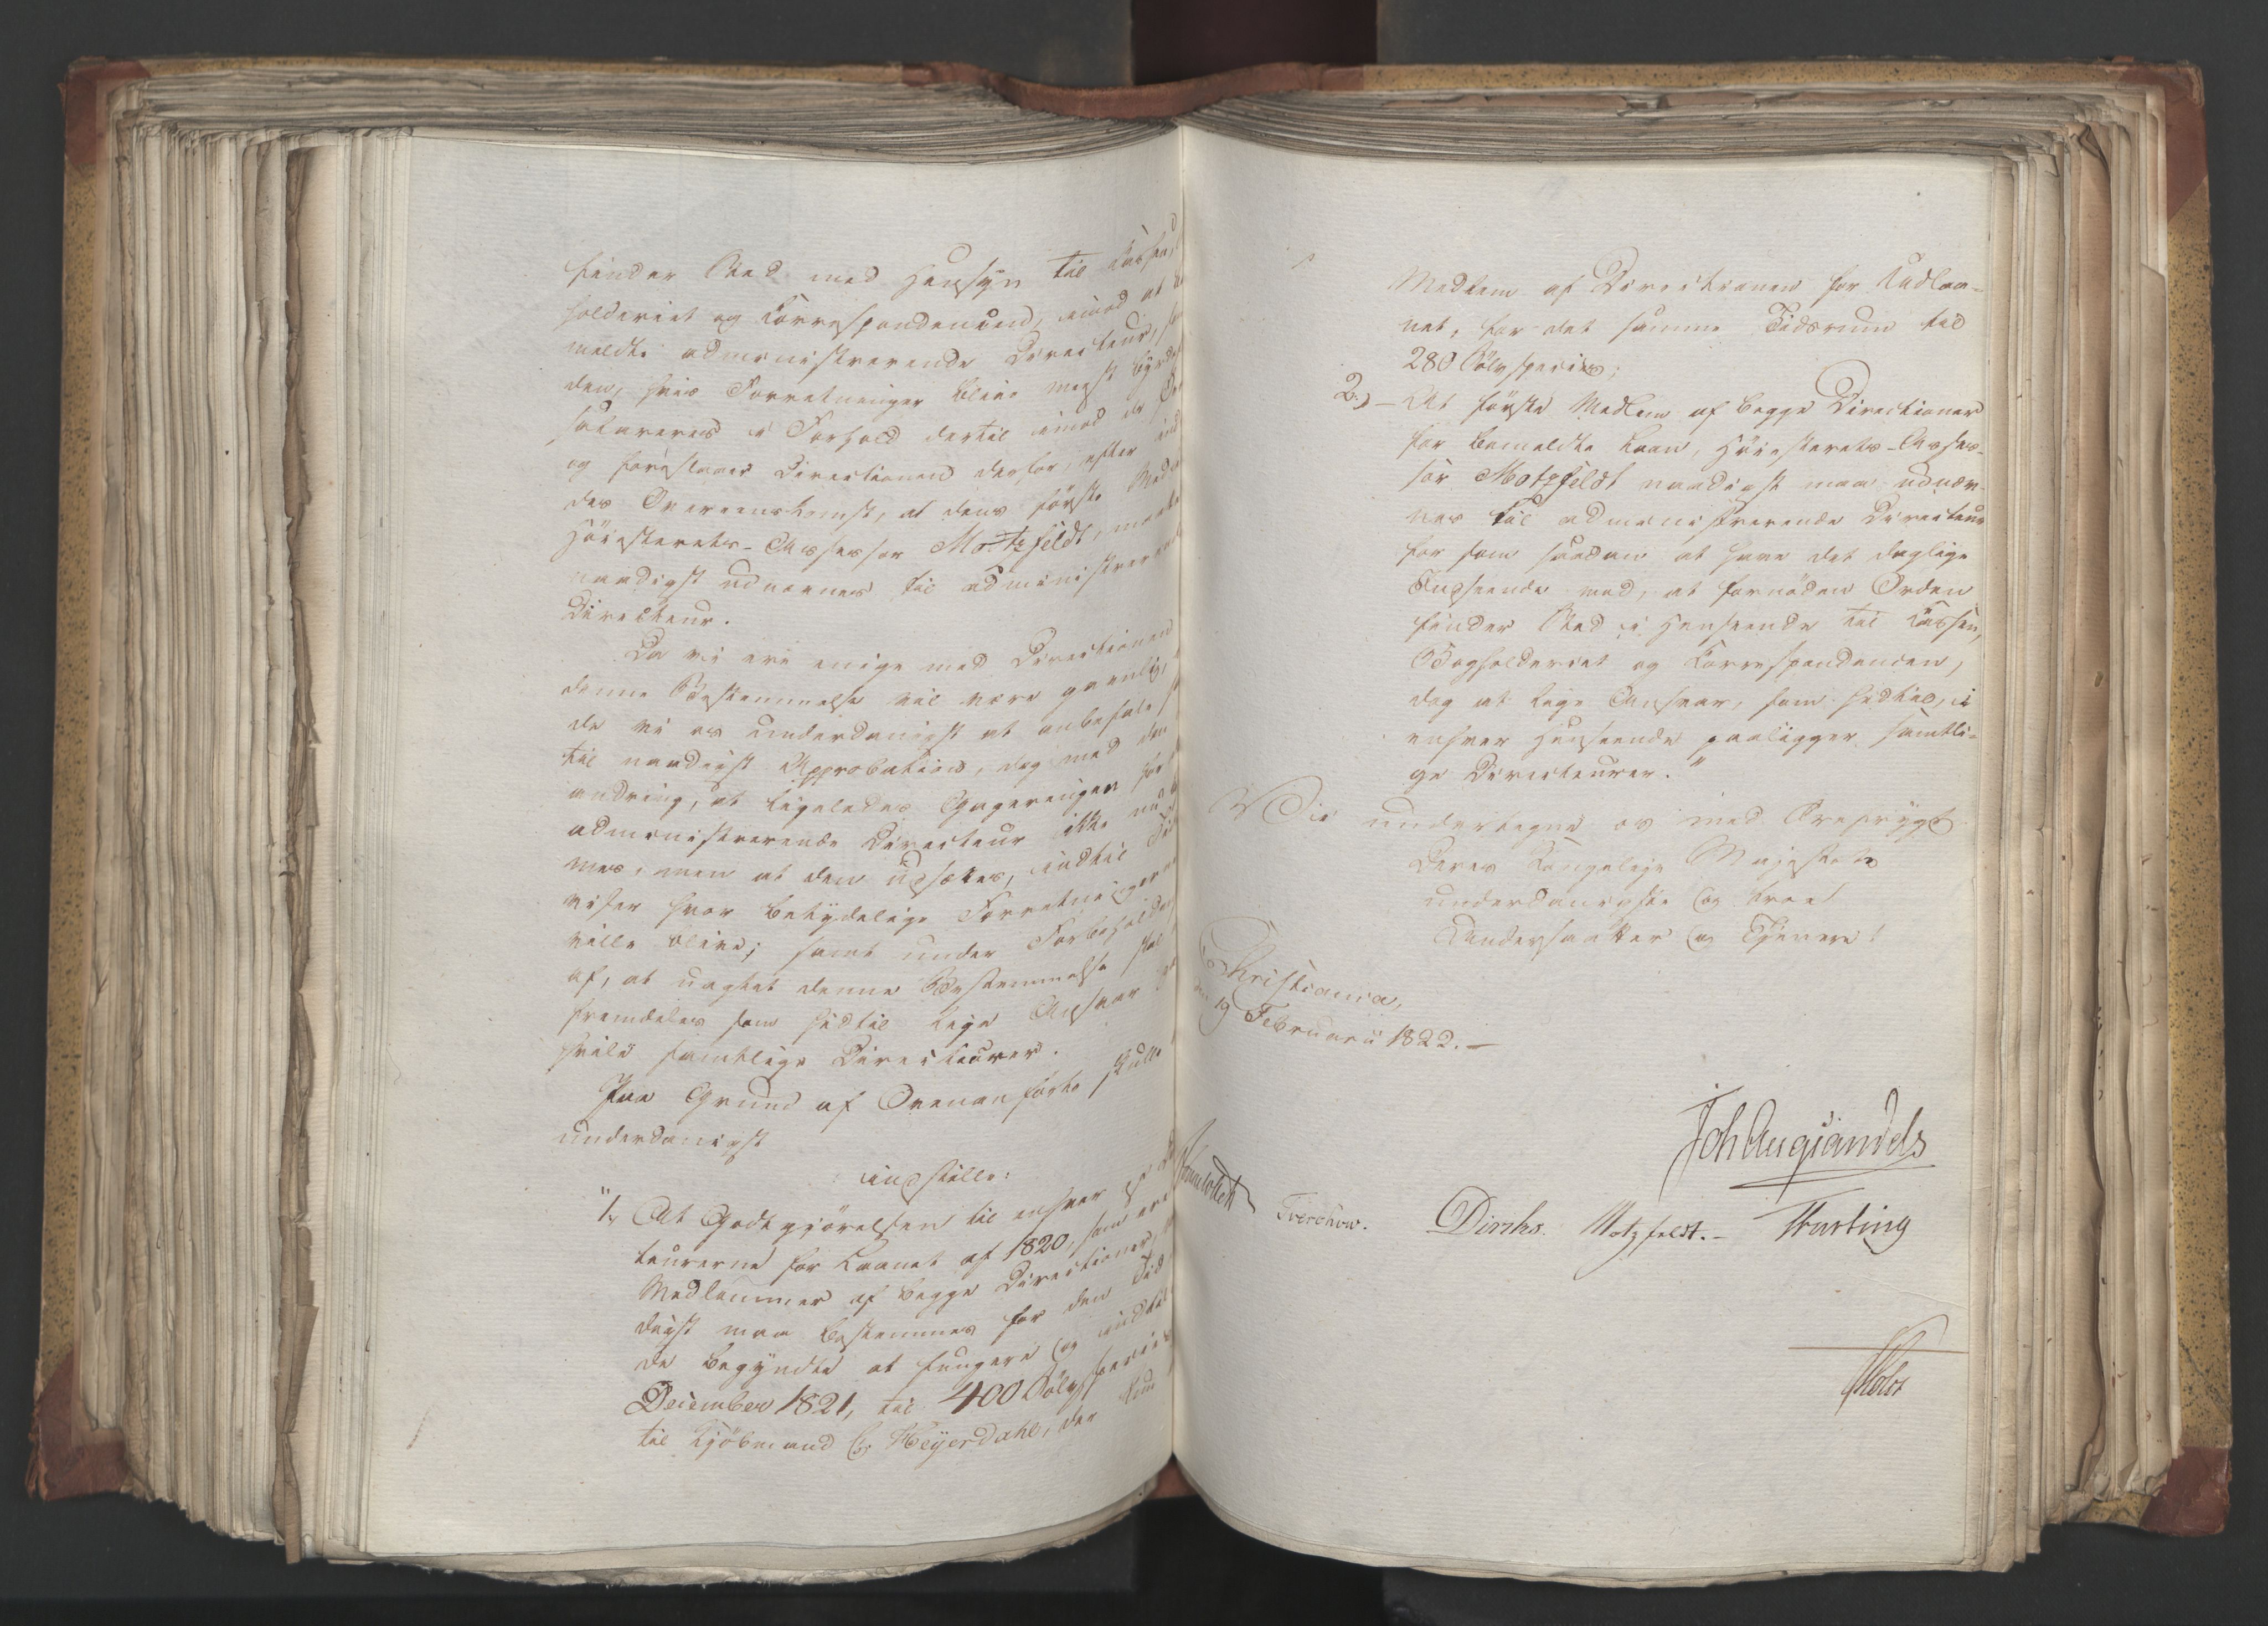 finder Sted med Hensyn til Cassen,
holderiet og Correspondencen, imod at
meldte administrerende Directeur,
den, hvis Forretninger blive meest
salareres i Forhold dertil imod de
og foreslaaer Directionen derfor, efter
des Overeenskomst, at dens første
Høiesterets-Assessor Motzfeldt, maatte
naadigst udnævnes til administrerende
Directeur.
Da vi ere enige med Directionen
denne Bestemmelse vil være gavnlig,
de vi os underdanigst at anbefale
til naadigst Approbation, dog med den
andring, at ligeledes Gageringen for
administrerende Directeur ikke nu
mes, men at den udsættes, indtil
viser hvor betydelige Forretningerne
ville blive; samt under Forbeholden
af, at uagtet denne Bestemmelse skal
fremdeles som hidtil lige Ansvar
hvile samtlige Directeurer.
Paa Grund af Ovenanførte skulle
underdanigst
indstille:
"1, At Godtgjørelsen til enhver af
teurerne for Laanet af 1820, som ere
Medlemmer af begge Directioner,
digst maa bestemmes for den Tid
de begyndte at fungere og indtil
December 1821, til 400 Sølvspecies
til Kjøbmand Heyerdahl, der kun
Medlem af Directionen for Udlaa-
net, for det samme Tidsrum til
280 Sølvspecies;
2.) - At første Medlem af begge Directioner
for bemeldte Laan, Høiesterets-Asses-
sor Motzfeldt naadigst maa udnæv-
nes til administrerende Directeur
for som saadan at have det daglige
Indseende med, at fornöden Orden
finder Sted i Henseende til Cassen,
Bogholderiet og Correspondencen,
dog at lige Ansvar, som hidtil, i
enhver Henseende paaligger samtli-
ge Directeurer."
Vi undertegne os med Ærefrygt
Deres Kongelige Majestæts
underdanigste og troe
Undersaatter og Tjenere!
Christiania,
den 19 Februarii 1822. -
Joh Aug Sandels
Sommerhielm Treschow. Diriks. Motzfeldt. - Fasting
Holst